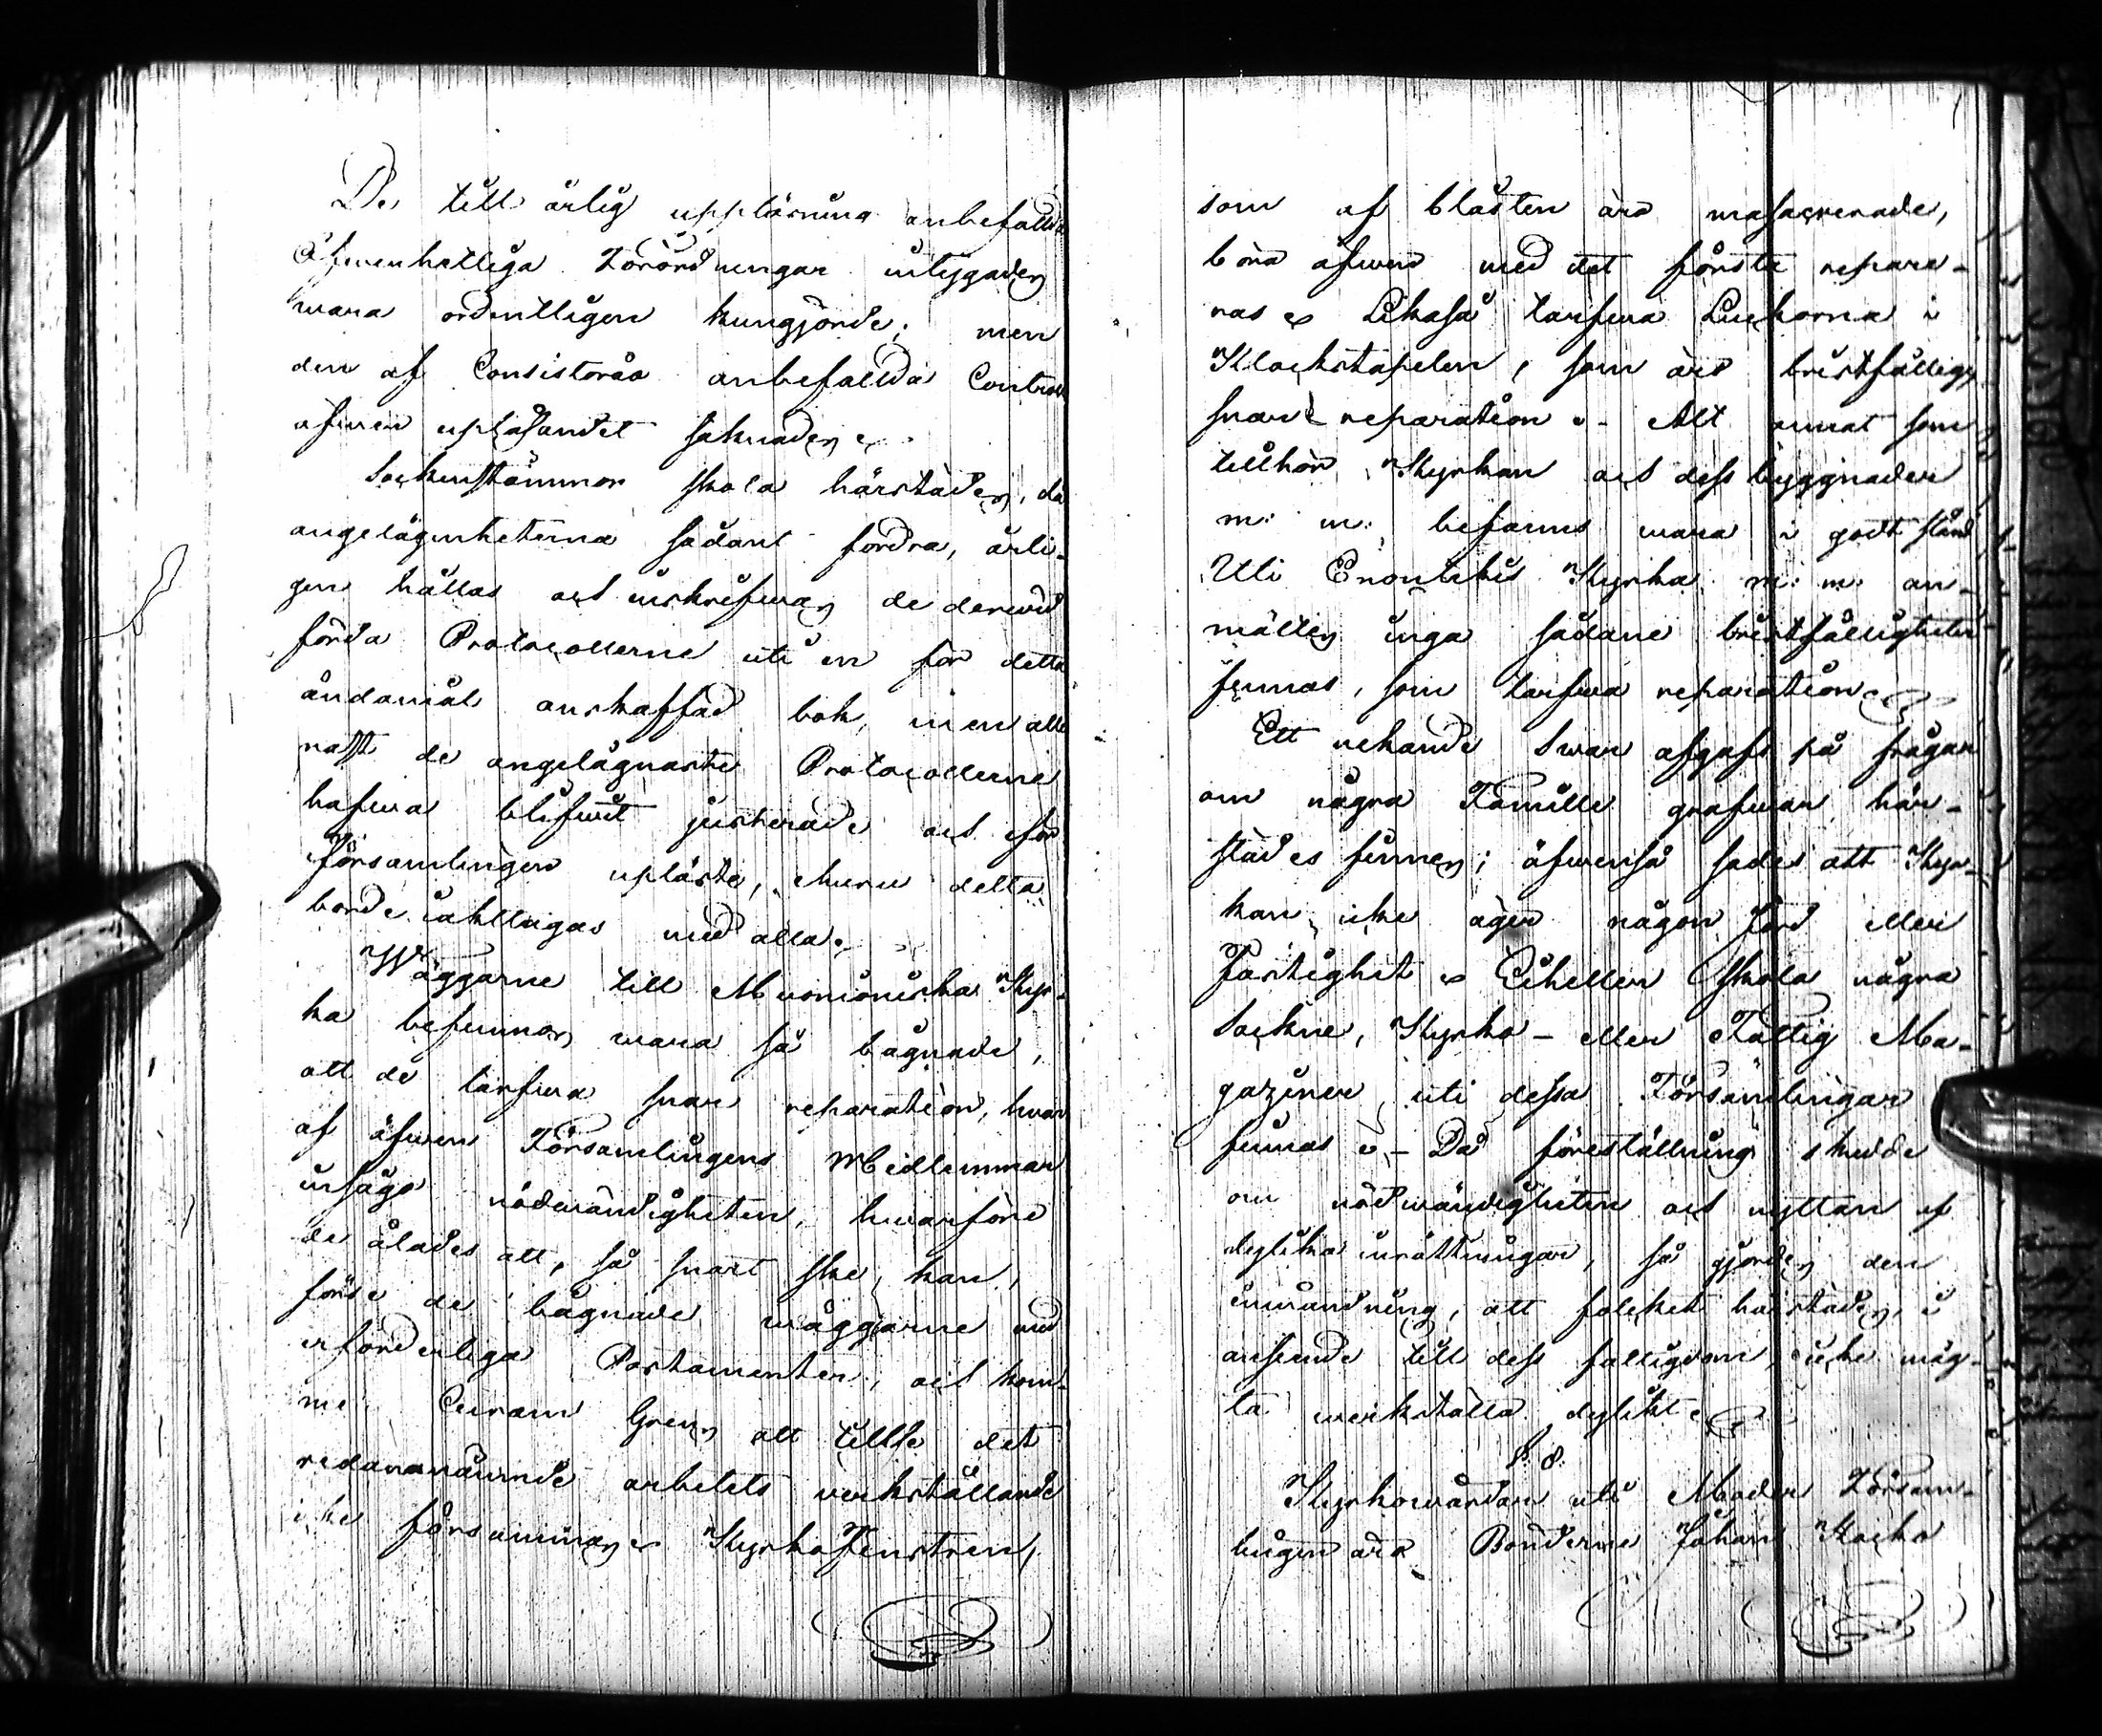 De till årlig uppläsning anbefallda
Öfwerhetliga Förordningar intygades
wara ordentligen kungjorde; men
den af Consistorio anbefallda Controll
öfwer uplasandet saknades.
Sockenstämmor skola härstädes, då
angelägenheterna sådant fordra, årli-
gen hållas och inskrifwas de derwid
förda Protocollerne uti en för detta
ändamål anskaffad bok, men alle
nast de angelägnaste Protocollerne
hafwa blifwit justerade och för
Församlingen upläste, ehuru detta
borde iakttagas med alla.
Wäggarne till Muonioniska Kyr-
ka befunnos wara så bågnade,
att de tarfwa snar reparation, hwar
af äfwen Församlingens Medlemmar
insågo nödwändigheten, hwarföre
de ålades att, så snart ske kan,
förse de bågnade wäggarne med
erforderliga Postamenter, och kom-
me Curam Gerens att tillse det
redannämnde arbetets werkställande
icke försummas. Kyrkofenstren,
som af blåsten äro massacrerade,
böra äfwen med det första repare-
ras. Likaså tarfwa Luckorna i
Klockstapelen, som äro bristfällige,
snar reparation. Alt annat som
tillhör Kyrkan och dess byggnader
m: m: befanns wara i godt stånd
Uti Enontekis Kyrka m: m: an-
mältes inga sådane bristfälligheter
finnas, som tarfwa reparation.
Ett nekande Swar afgafs på frågan
om några Famille grafwar här-
städes finnes; äfwenså sades att Kyr-
kan icke äger någon Jord eller
Fastighet. Eiheller skola några
Sockne, Kyrko- eller Fattig Ma-
gaziner uti dessa Församlingar
finnas. - Då föreställning skedde
om nödwändigheten och nyttan af
dylika inrättningar, så gjordes den
inwändning, att folcket härstädes, i
anseende till dess fattigdom, icke mäg-
ta werkställa dylikt.
§. 8.
Kyrkowärdar uti Moder Försam-
lingen äro Bönderne Johan